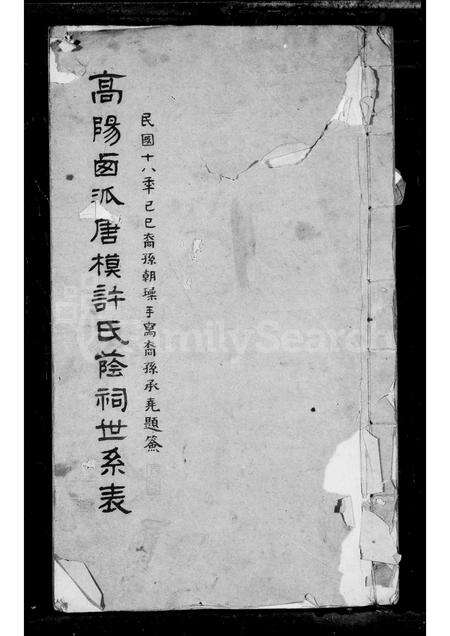 高陽卥派唐模許氏蔭祠世系表
民國十八年己巳裔孫朝璪手寫裔孫承堯題簽
FamilySearch